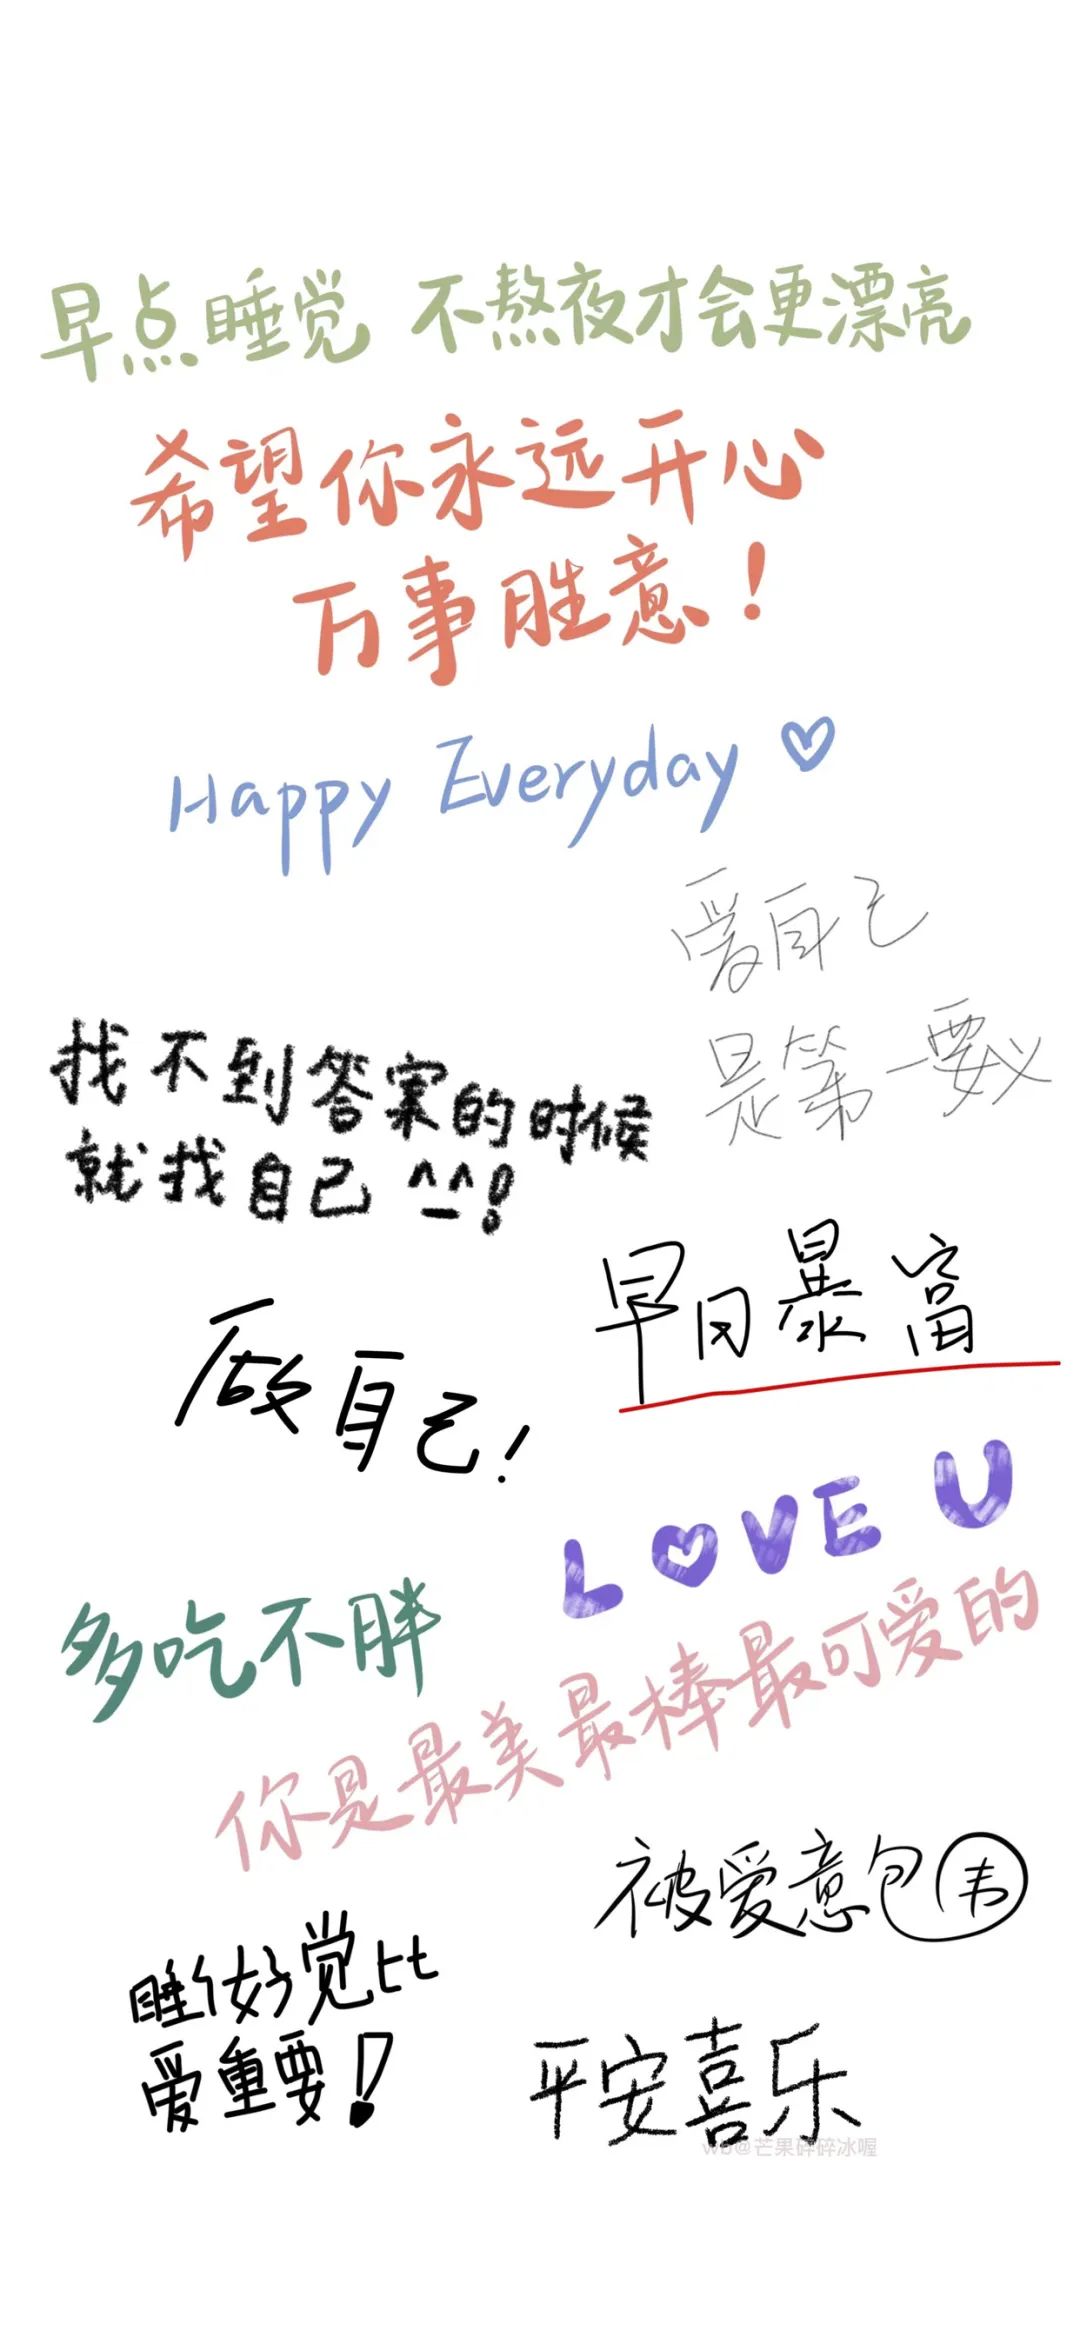 早点睡觉 不熬夜才会更漂亮
希望你永远开心
万事胜意！
Happy Everyday ♡
爱自己
是第一要义
找不到答案的时候
就找自己 ^_^!
做自己！
早日暴富
LOVE U
多吃不胖
你是最美最棒最可爱的
被爱意包围
睡个好觉比
爱重要！
平安喜乐
wb@芒果碎碎冰喔